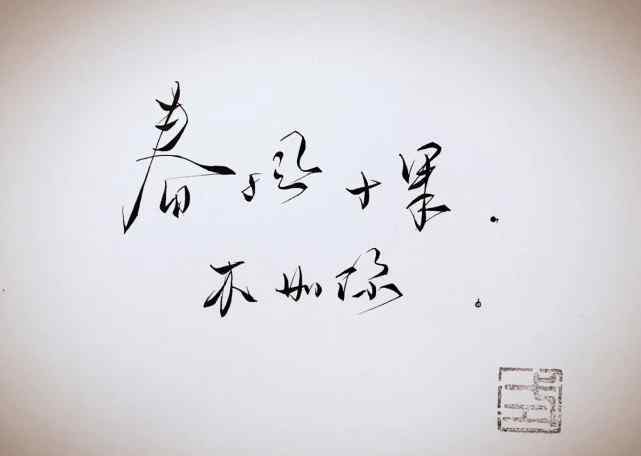 春风十里.
不如你。